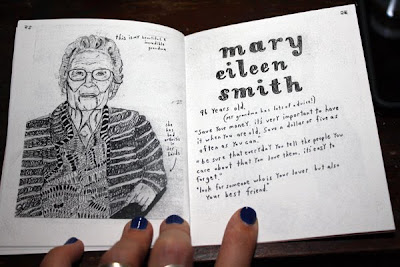 this is my beautiful & incredible grandma
she has bad arthritis in her hands
mary
eileen
smith
96 years old.
(my grandma has lots of advice!)
"Save your money. it's very important to have
it when you are old. save a dollar or five as
often as you can.
be sure that everyday you tell the people you
care about that you love them. it's easy to
forget."
"look for someone who is your lover but also
your best friend."